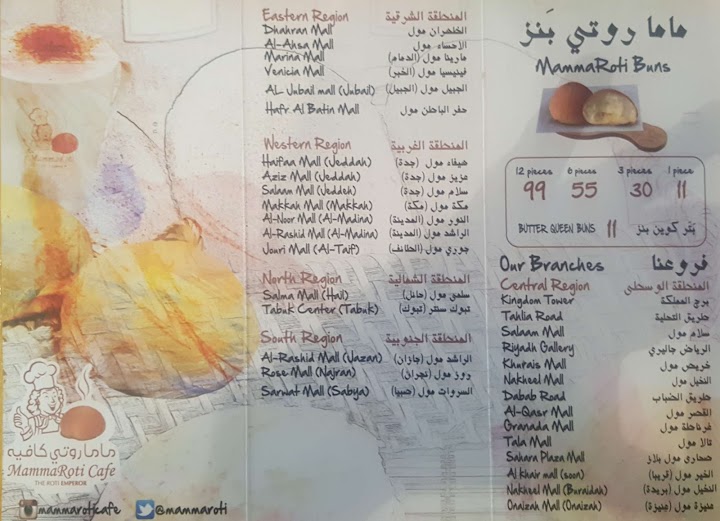 MammaRoti
ماما روتي كافيه
MammaRoti Cafe
THE ROTI EMPEROR
mammaroticafe @mammaroti
Eastern Region المنطقة الشرقية
Dhahran Mall الظهران مول
Al-Ahsa Mall الأحساء مول
Marina Mall مارينا مول (الدمام)
Venicia Mall فينيسيا مول (الخبر)
AL Jubail mall (Jubail) الجبيل مول (الجبيل)
Hafr Al Batin Mall حفر الباطن مول
Western Region المنطقة الغربية
Haifaa Mall (Jeddah) هيفاء مول (جدة)
Aziz Mall (Jeddah) عزيز مول (جدة)
Salaam Mall (Jeddeh) سلام مول (جدة)
Makkah Mall (Makkah) مكة مول (مكة)
Al-Noor Mall (Al-Madina) النور مول (المدينة)
Al-Rashid Mall (Al-Madina) الراشد مول (المدينة)
Jouri Mall (Al-Taif) جوري مول (الطائف)
North Region المنطقة الشمالية
Salma Mall (Hail) سلمى مول (حائل)
Tabuk Center (Tabuk) تبوك سنتر (تبوك)
South Region المنطقة الجنوبية
Al-Rashid Mall (Jazan) الراشد مول (جازان)
Rose Mall (Najran) روز مول (نجران)
Sarwat Mall (Sabya) السروات مول (صبيا)
ماما روتي بَنز
MammaRoti Buns
12 pieces 6 pieces 3 pieces 1 piece
99 55 30 11
BUTTER QUEEN BUNS 11 بَتَر كوين بنز
Our Branches فروعنا
Central Region المنطقة الوسطى
Kingdom Tower برج المملكة
Tahlia Road طريق التحلية
Salaam Mall سلام مول
Riyadh Gallery الرياض جاليري
Khurais Mall خريص مول
Nakheel Mall النخيل مول
Dabab Road طريق الضباب
Al-Qasr Mall القصر مول
Granada Mall غرناطة مول
Tala Mall تالا مول
Sahara Plaza Mall صحارى مول بلازا
Al khair mall (soon) الخير مول (قريبا)
Nakheel Mall (Buraidah) النخيل مول (بريدة)
Onaizah Mall (Onaizah) عنيزة مول (عنيزة)